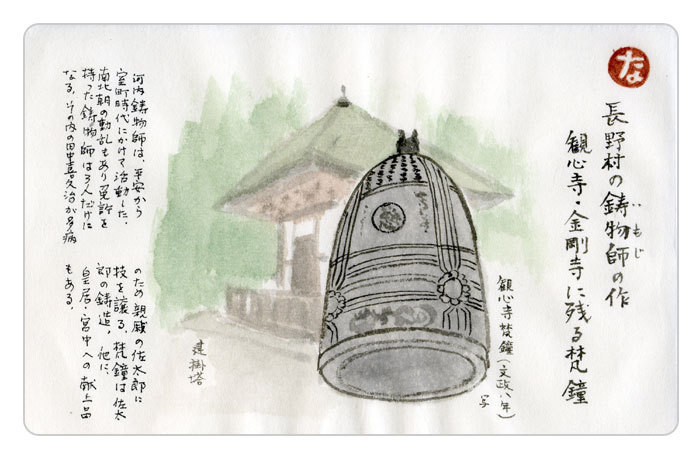 な
長野村の鋳物師の作
いもじ
観心寺・金剛寺に残る梵鐘
観心寺梵鐘(文政八年)
写
建掛塔
河内鋳物師は、平安から
室町時代にかけて活動した。
南北朝の動乱もあり免許を
持った鋳物師は3人だけに
なる。その内の田中喜久治が多病
のため親戚の佐太郎に
技を譲る。梵鐘は佐太
郎の鋳造。他に、
皇居・宮中への献上品
もある。